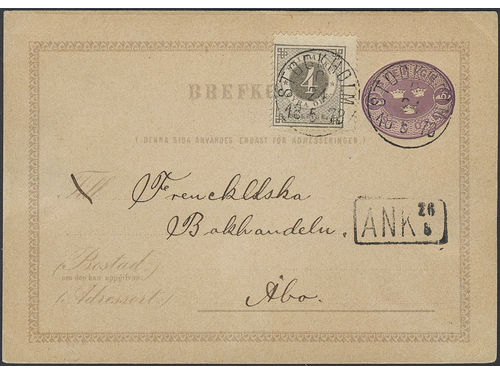 BREFKORT
STOCKHOLM
18 5 78
4
STOCKHOLM
18 5 78
( DENNA SIDA ANVÄNDES ENDAST FÖR ADRESSERINGEN. )
Till Frenckellska
Bokhandeln.
ANK 26
5
(Bostad)
om den kan uppgifvas.
(Adressort.) Åbo.